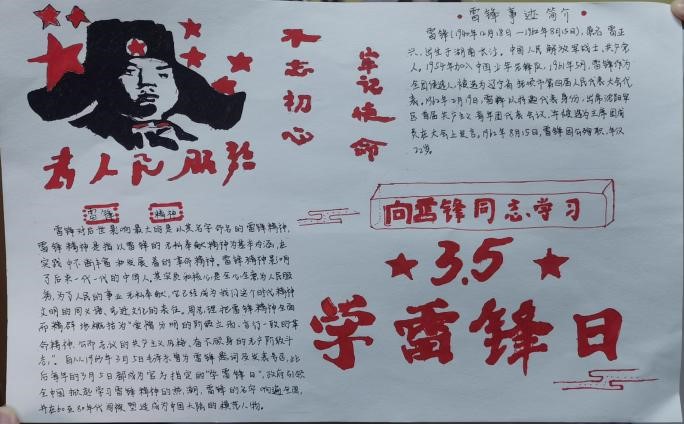 不忘初心
牢记使命
为人民服务
·雷锋事迹简介·
雷锋(1940年12月18日—1962年8月15日),原名雷正
兴,出生于湖南长沙,中国人民解放军战士,共产党
人。1954年加入中国少年先锋队,1960年
全国
表。1962年2月19日,雷锋以特邀代表身份,出席沈阳军
区首届共产主义青年团代表会议,并被选为主席团成
员在大会上发言。1962年8月15日,雷锋因公殉职,年仅
22岁。
雷锋 精神
雷锋对后世影响最大的是以其名字命名的雷锋精神,
雷锋精神是指以雷锋的无私奉献精神为基本内涵,在
实践中不断丰富和发展着的革命精神。雷锋精神影响
了后来一代一代的中国人。其实质和核心是全心全意为人民服
务,为了人民的事业无私奉献,它已经成为我们这个时代精神
文明的同义语、先进文化的表征。周总理把雷锋精神全面
而精辟地概括为“爱憎分明的阶级立场、言行一致的革
命精神、公而忘私的共产主义风格、奋不顾身的无产阶级斗
志”。自从1963年3月5日毛泽东曾为雷锋题词发表后,此
后每年的3月5日都成为官方指定的“学雷锋日”,政府引领
全中国掀起学习雷锋精神的热潮,雷锋的名字响遍全国,
并在60至80年代周微塑造成为中国大陆的模范人物。
向雷锋同志学习
3.5
学雷锋日